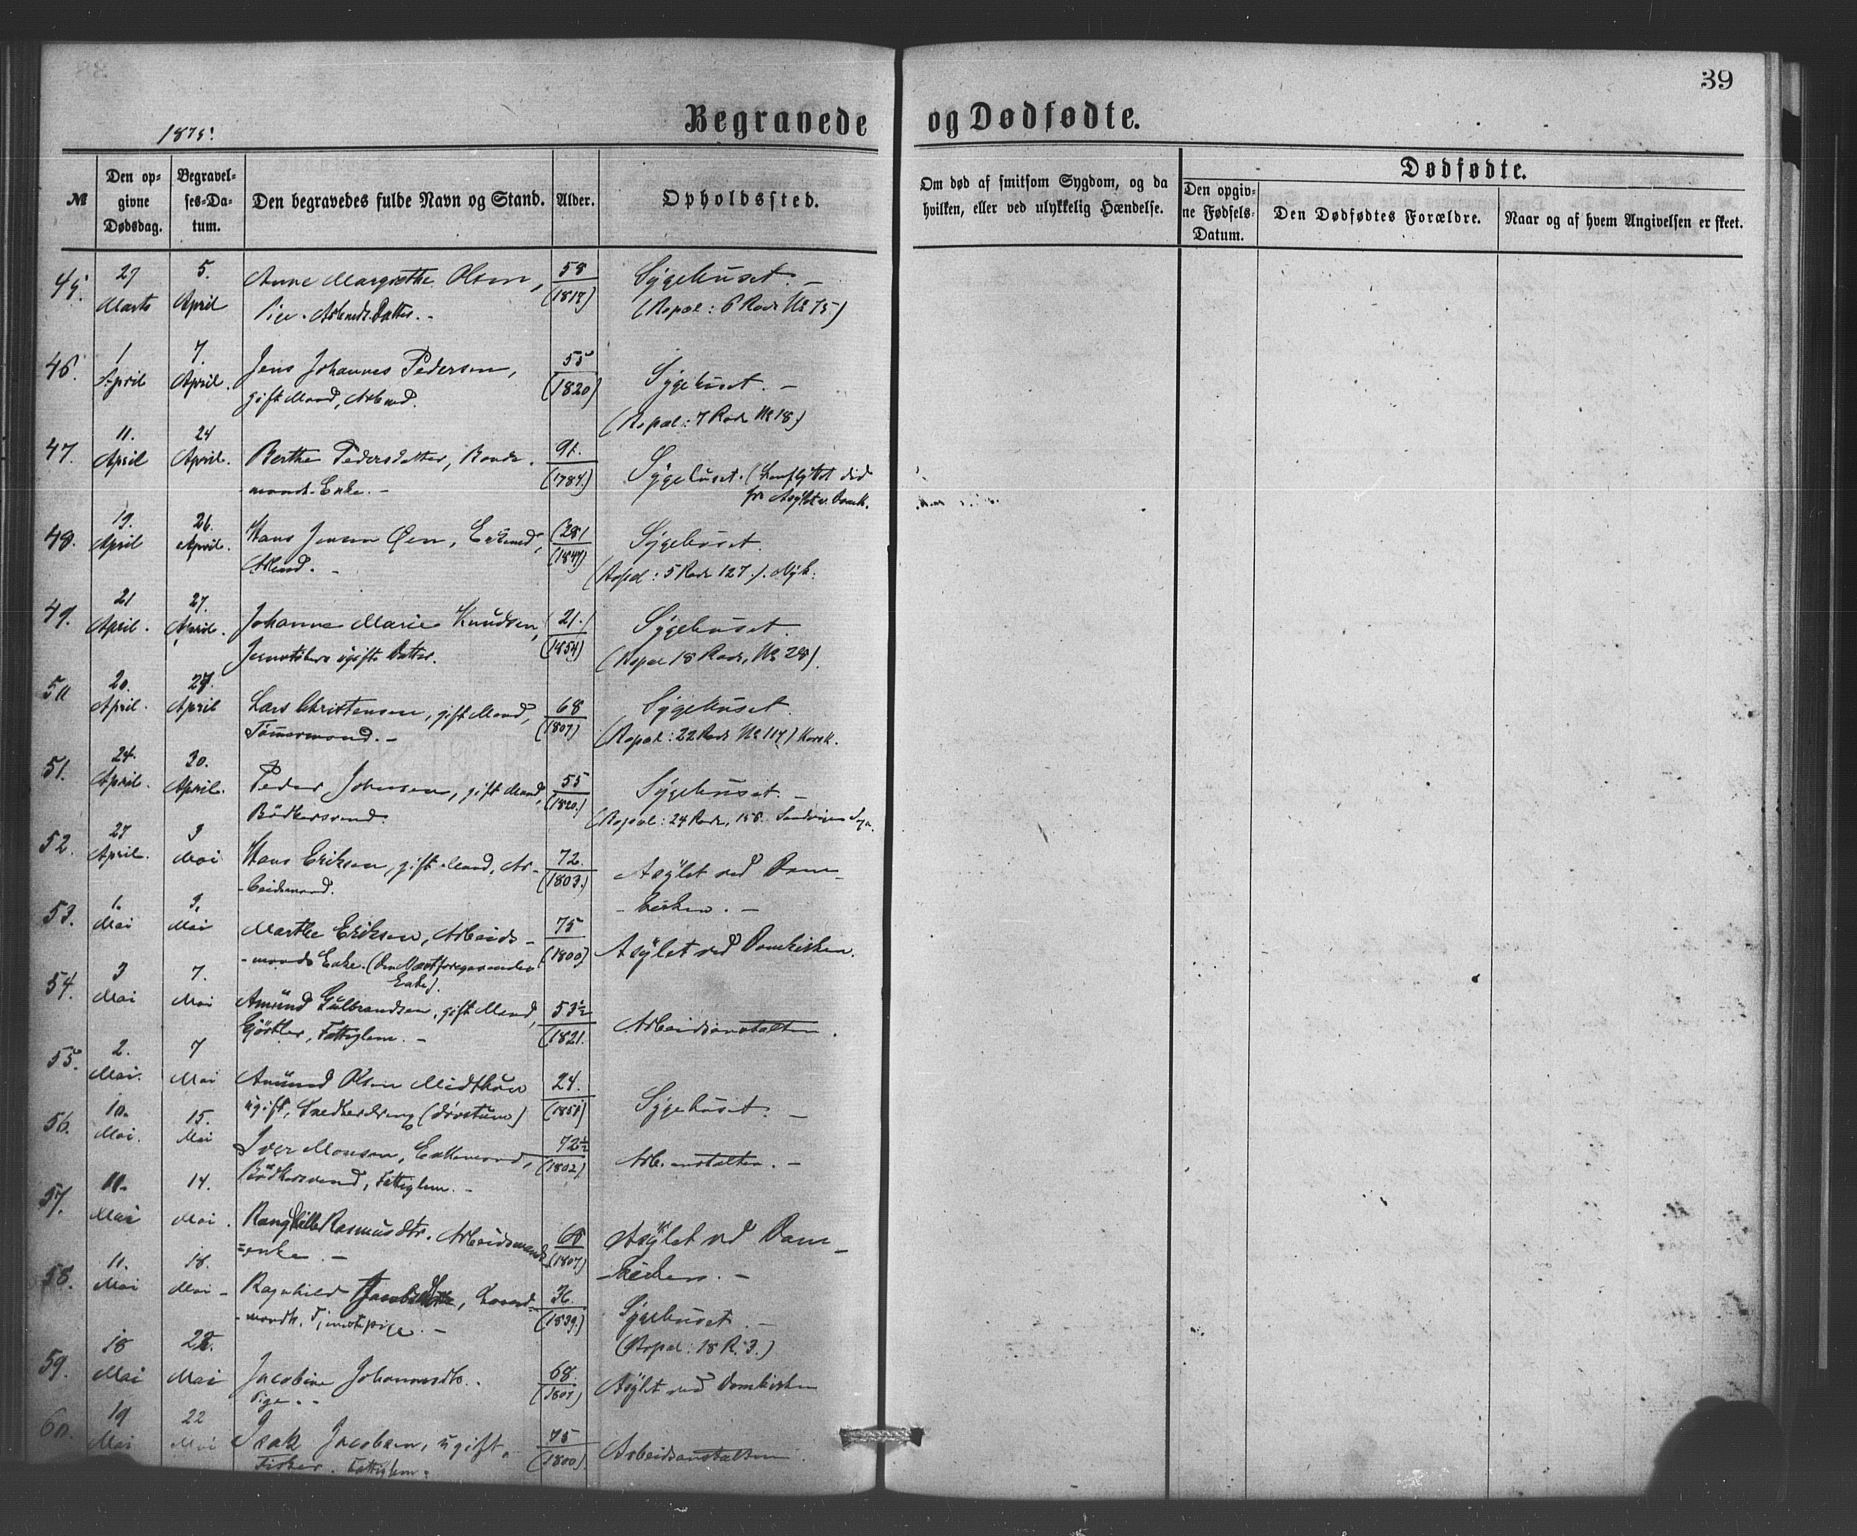 39
Begravede og Dødfødte.
1875.
№
Den opgivne Dødsdag.
Begravelses-Datum.
Den begravedes fulde Navn og Stand.
Alder.
Opholdssted.
Om død af smitsom Sygdom, og da hvilken, eller ved ulykkelig Hændelse.
Dødfødte.
Den opgivne Fødsels-Datum.
Den Dødfødtes Forældre.
Naar og af hvem Angivelsen er skeet.
45. 27 Marts 5. April Anne Margrethe Olsen, 58 Sygehuset. –
Pige. Arbmds Datter. – (1817) (Ropal: 6 Rode № 75)
46. 1 April 7. April. Jens Johannes Pedersen, 55 Sygehuset. –
gift Mand, Arbmd. (1820) (Ropal: 7 Rode № 18.)
47. 11. April 24 April. Berthe Pedersdatter, Bonde- 91. Sygehuset. (henflyttet did
mands Enke. – (1784.) fra Asylet v. Domk.
48. 19. April 26. April. Hans Jensen Øen, Enkemd, (28) Sygehuset.
Arbmd. – (1847) (Ropal: 5 Rode 127.). Nyk:
49. 21 April. 27. April. Johanne Marie Knudsen, (21.) Sygehuset.
ugifte Datter. (1854) (Ropal 18 Rode, № 28).
50 20. April. 27. April Lars Christensen, gift Mand, 68 Sygehuset.
Tømmermand. – (1807) (Ropal: 22 Rode № 117) Korsk.
51. 24. April. 30. April. Peder Johnsen, gift Mand, 55 Sygehuset. –
Bødkersvend. (1820.) (Ropal: 24 Rode, 158. Sandvigen
52. 27 April. 3 Mai Hans Eriksen, gift Mand, Ar- 72. Asylet ved Dom-
beidsmand. (1803.) kirken. –
53. 1. Mai 3. Mai Marthe Eriksen, Arbeids- 75 Asylet ved Domkirken.
mands Enke. (Den Næstforegaaendes (1800)
Enke).
54. 3 Mai 7. Mai Amund Gulbrandsen, gift Mand, 53½ Arbeidsanstalten.
Gjørtler, Fattiglem. – (1821.
55. 2. Mai. 7 Mai Amund Olsen Midthun 24. Sygehuset. –
ugift, Snedkerdreng (døvstum) (1851)
56. 10. Mai. 15. Mai Iver Monsen, Enkemand, 72½ Arb. anstalten. –
Bødkersvend, Fattiglem. – (1802)
57. 10. Mai 14. Mai. Rangnhilde Rasmusdtr. Arbeidsmands- 68 Asylet ved Dom-
enke. – (1807) kirken. –
58. 11. Mai 18. Mai – Ragnhild Jacobsdtr, 36. Sygehuset. –
Tjenestepige. – (1839.) (Ropal: 18 R. 3.)
59. 18 Mai 22. Mai Jacobine Johannesdtr. 68. Asylet ved Domkirken
Pige. (1807)
60. 19 Mai 22 Mai Isak Jacobsen, ugift. 75 Arbeidsanstalten.
Fisker. Fattiglem. (1800)